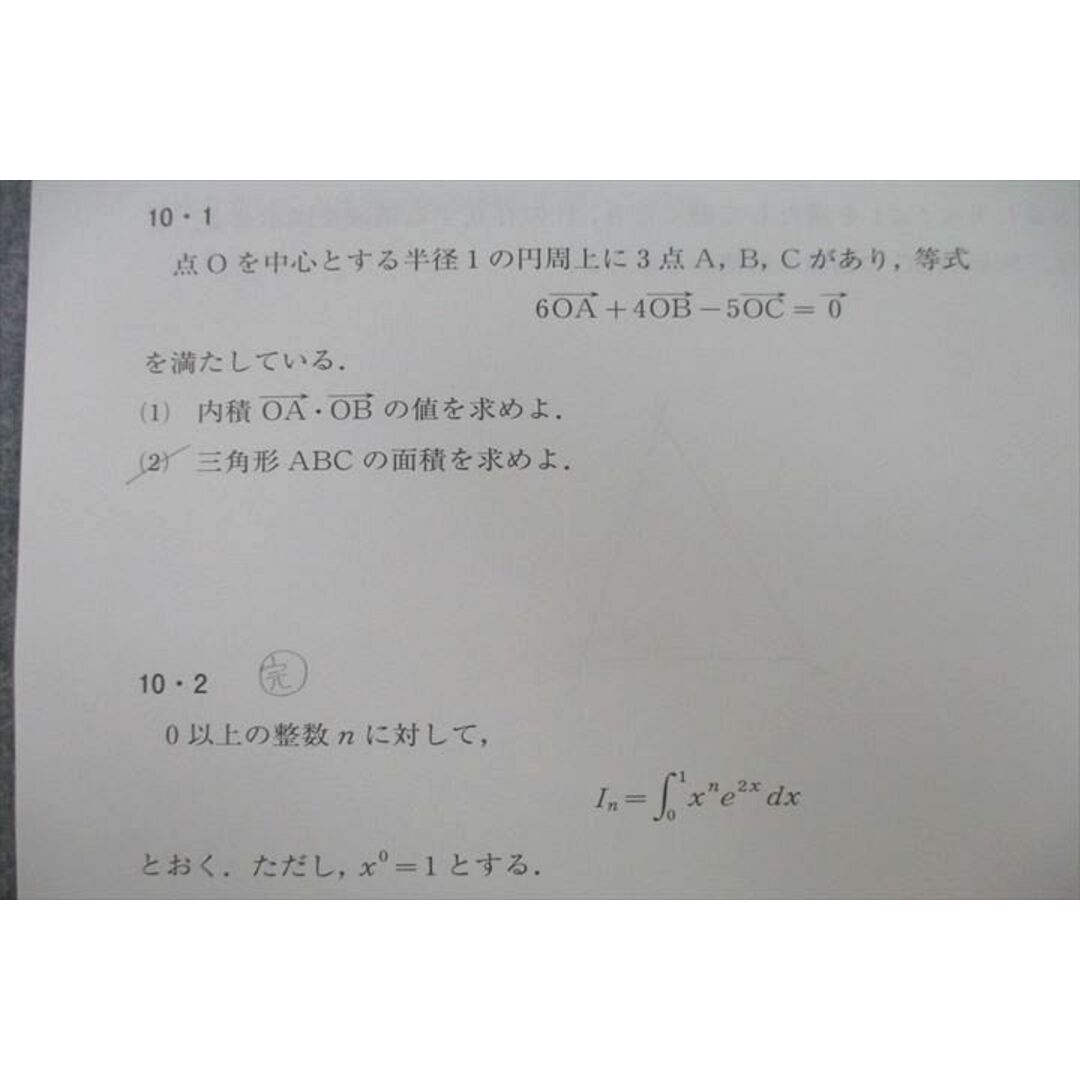 10・1
点Oを中心とする半径1の円周上に3点A, B, Cがあり, 等式
6OA→+4OB→−5OC→=0→
を満たしている.
(1) 内積OA→・OB→の値を求めよ.
(2) 三角形ABCの面積を求めよ.
10・2 完
0以上の整数nに対して,
Iₙ=∫₀¹xⁿe²ˣdx
とおく. ただし, x⁰=1とする.